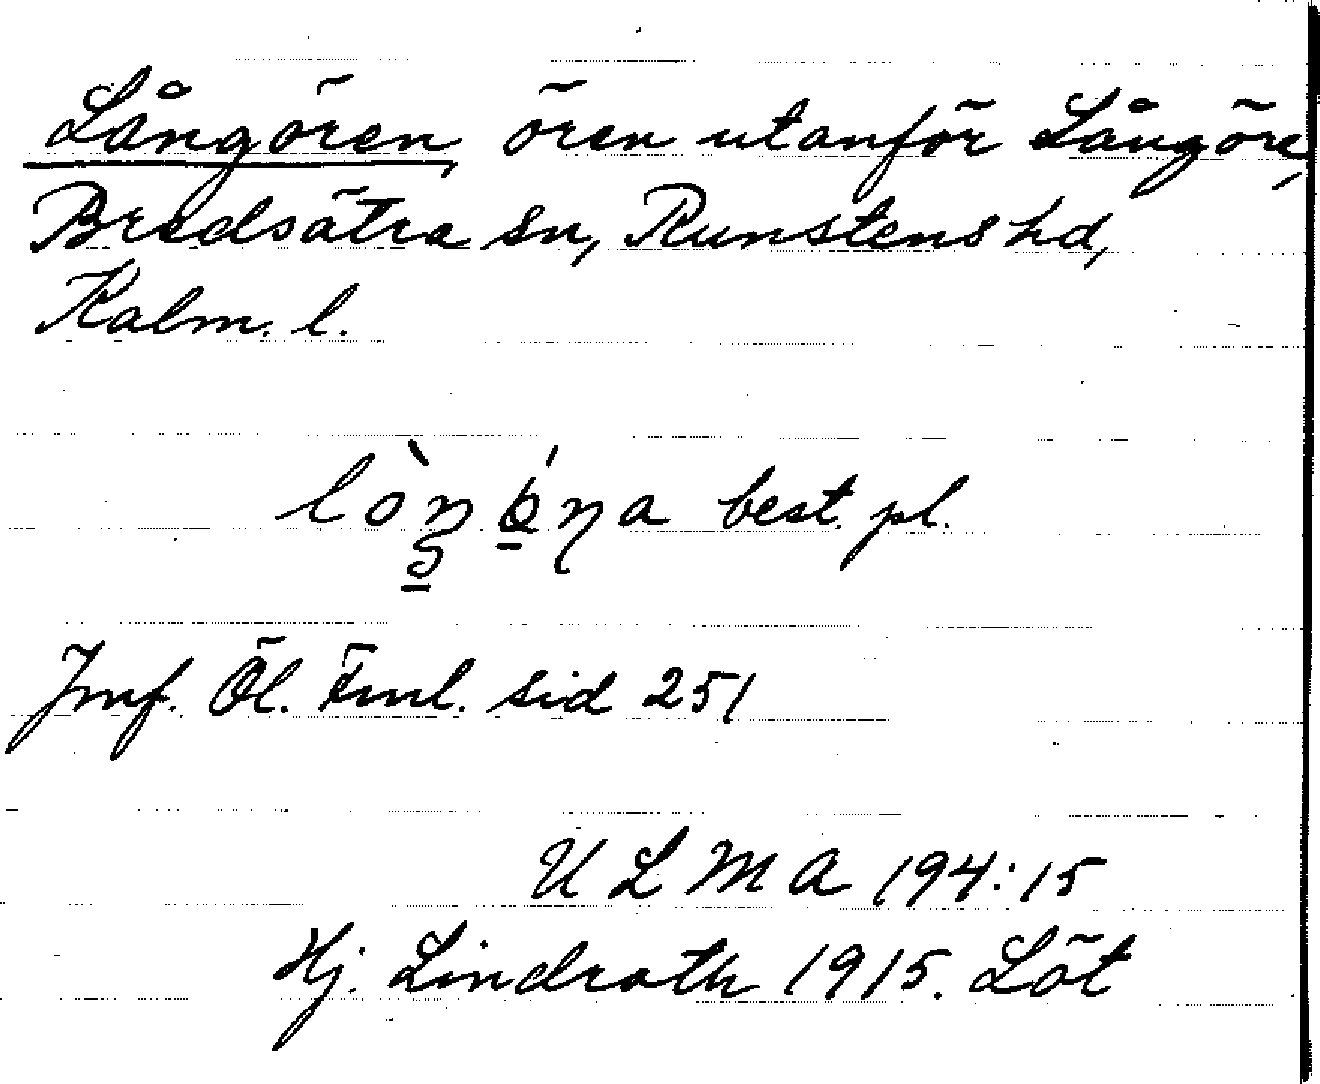 Långören, ören utanför Långöre,
Bredsätra sn, Runstens hd,
Kalm. l.
best. pl.
Jmf. Öl. Fml. sid 251
U L M A 194:15
Hj. Lindroth 1915. Löt